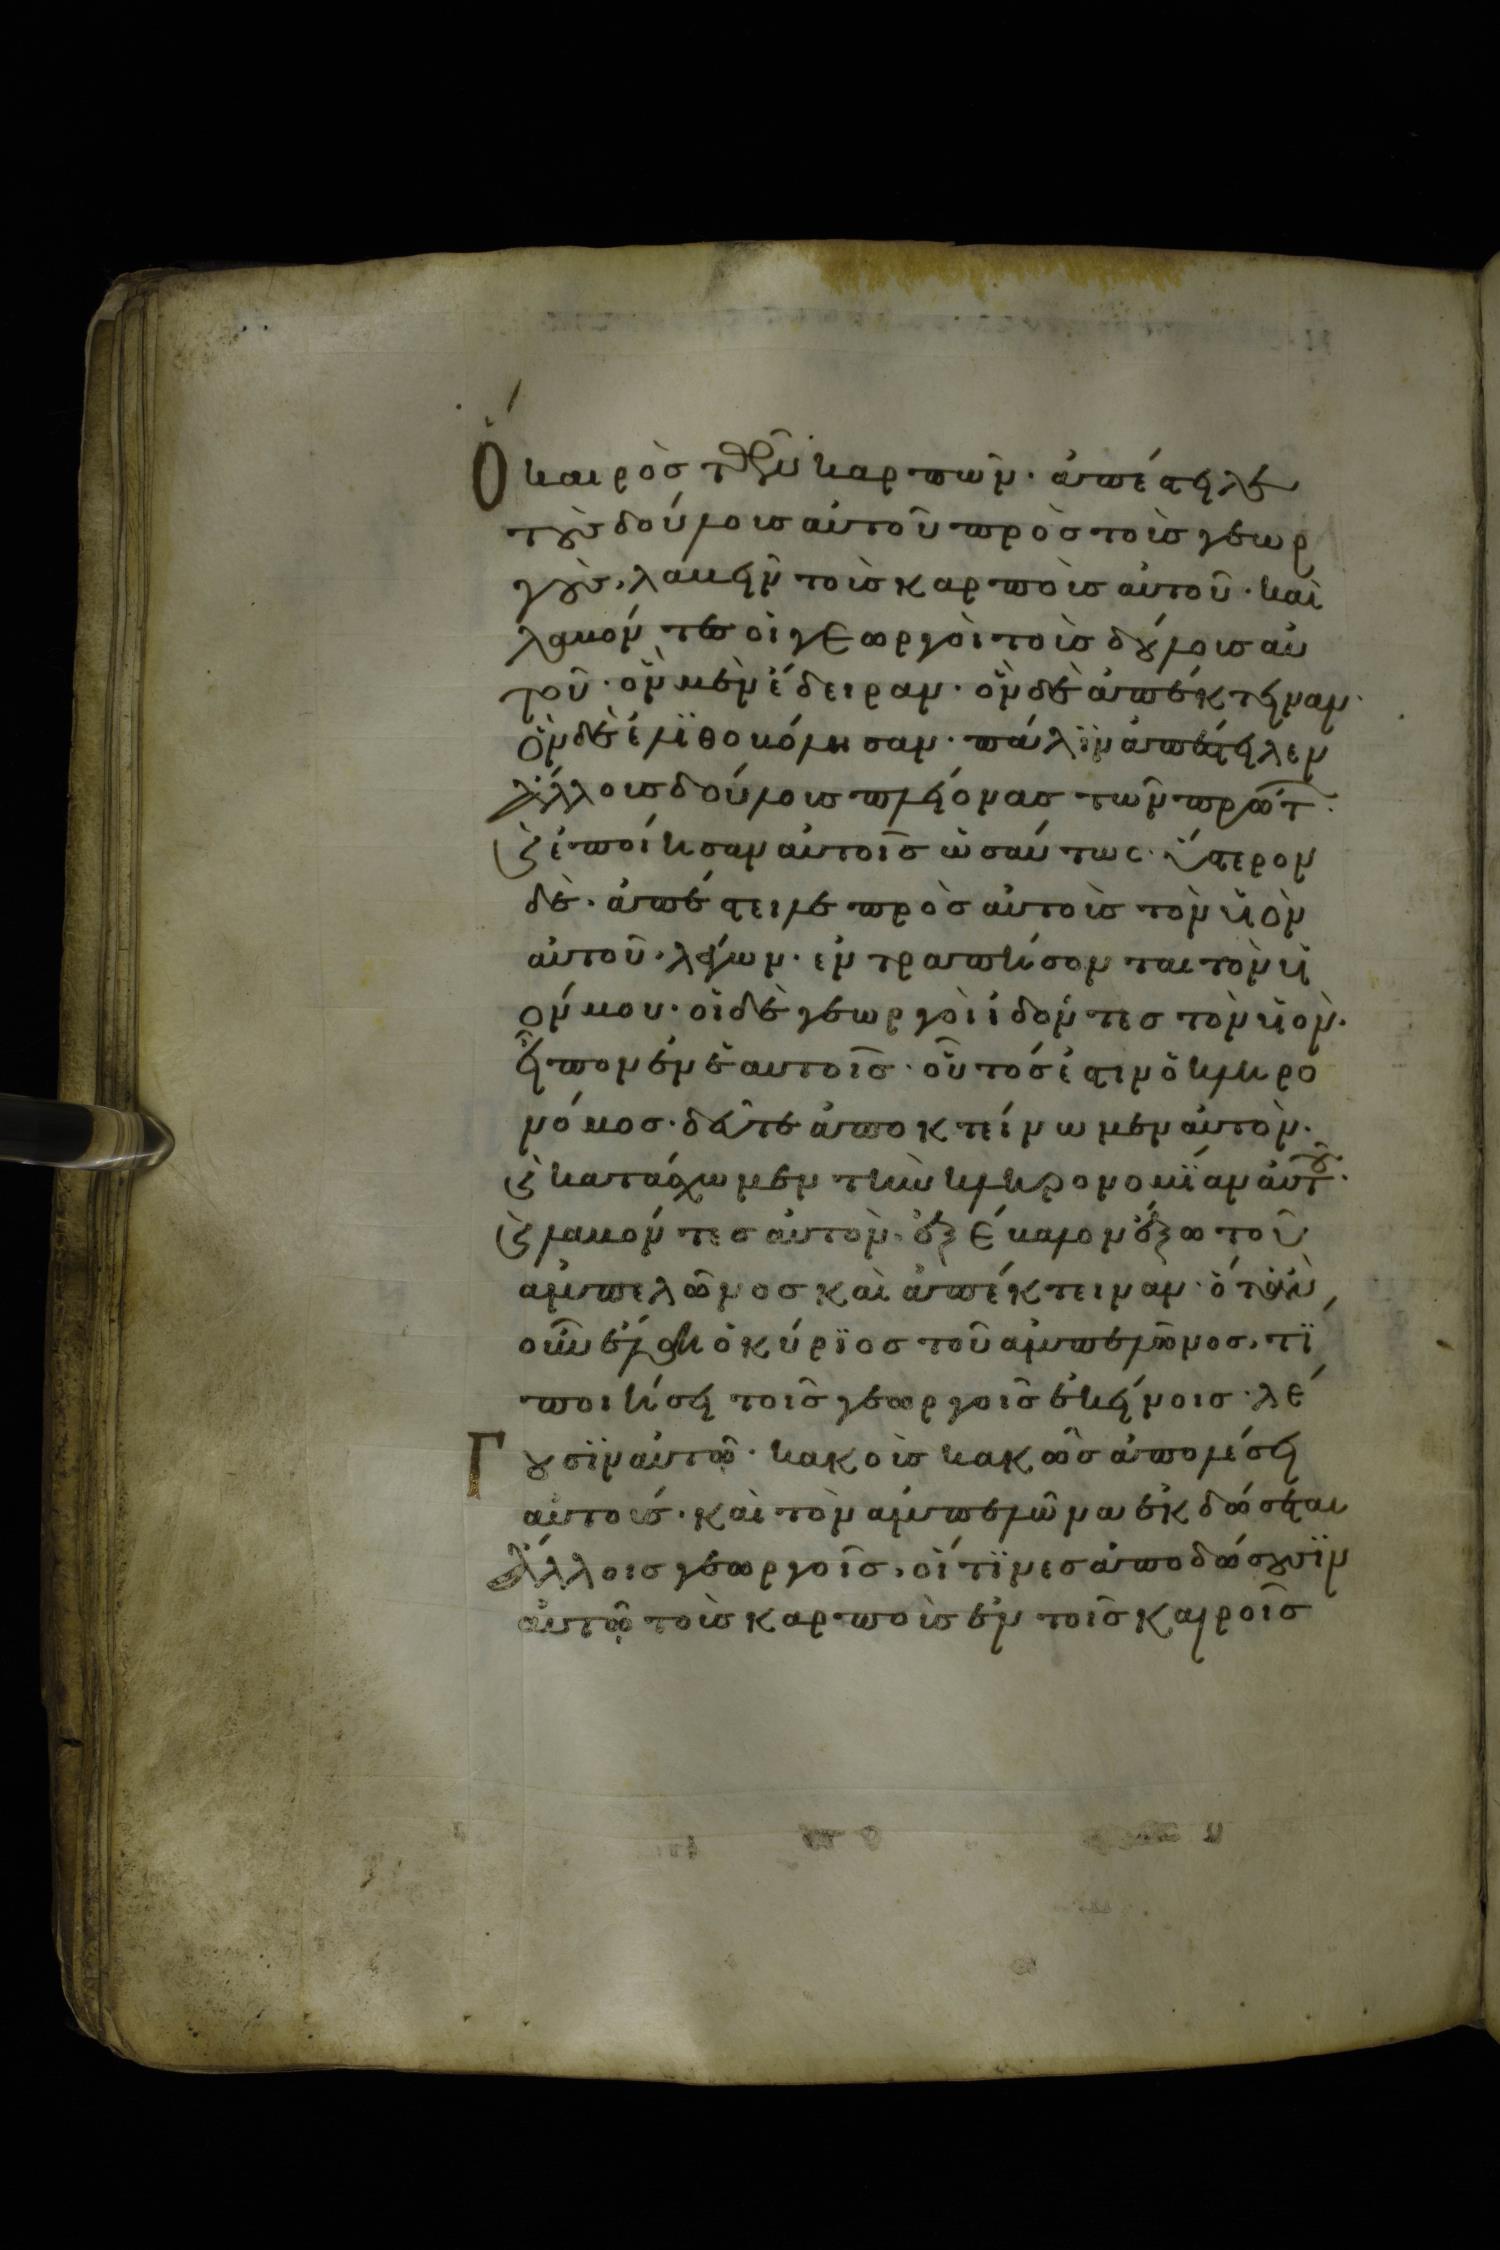 Ὁ καιρὸσ τῶν καρπῶν· ἀπέστειλε
τοὺσ δούλουσ αὐτοῦ πρὸσ τοὺσ γεωρ
γοὺσ, λαβεῖν τοὺσ καρποὺσ αὐτοῦ· καὶ
λαβόντεσ οἱ γεωργοὶ τοὺσ δούλουσ αὐ
τοῦ· ὃν μὲν ἔδειραν· ὃν δὲ ἀπέκτειναν·
ὃν δὲ ἐλϊθοβόλησαν· πάλϊν ἀπέστειλεν
ἄλλουσ δούλουσ πλείονασ τῶν πρώτ·
κ̀ ἐποίησαν αὐτοῖσ ὡσαύτωσ· ὕστερον
δὲ· ἀπέστειλε πρὸσ αὐτοὺσ τὸν υἱὸν
αὐτοῦ· λέγων· ἐντραπήσονται τὸν υἱ
όν μου· οἱ δὲ γεωργοὶ ἰδόντεσ τὸν υἱὸν·
εἶπον ἐν ἑαυτοῖσ· οὗτόσ ἐστιν ὁ κληρο
νόμοσ· δεῦτε ἀποκτείνωμεν αὐτὸν·
κ̀ κατάσχωμεν τὴν κληρονομϊαν αὐτοῦ·
κ̀ λαβόντεσ αὐτὸν· ἐξέβαλον ἔξω τοῦ
ἀμπελῶνοσ καὶ ἀπέκτειναν· ὅταν
οὖν ἔλθη ὁ κύρϊοσ τοῦ ἀμπελῶνοσ, τϊ
ποιήσει τοῖσ γεωργοῖσ ἐκείνοισ· λέ
Γουσϊν αὐτῶ· κακοὺσ κακῶσ ἀπολέσει
αὐτούσ· καὶ τὸν ἀμπελῶνα ἐκδώσεται
ἄλλοισ γεωργοῖσ, οἵτϊνεσ ἀποδώσουσϊν
αὐτῶ τοὺσ καρποὺσ ἐν τοῖσ καιροῖσ